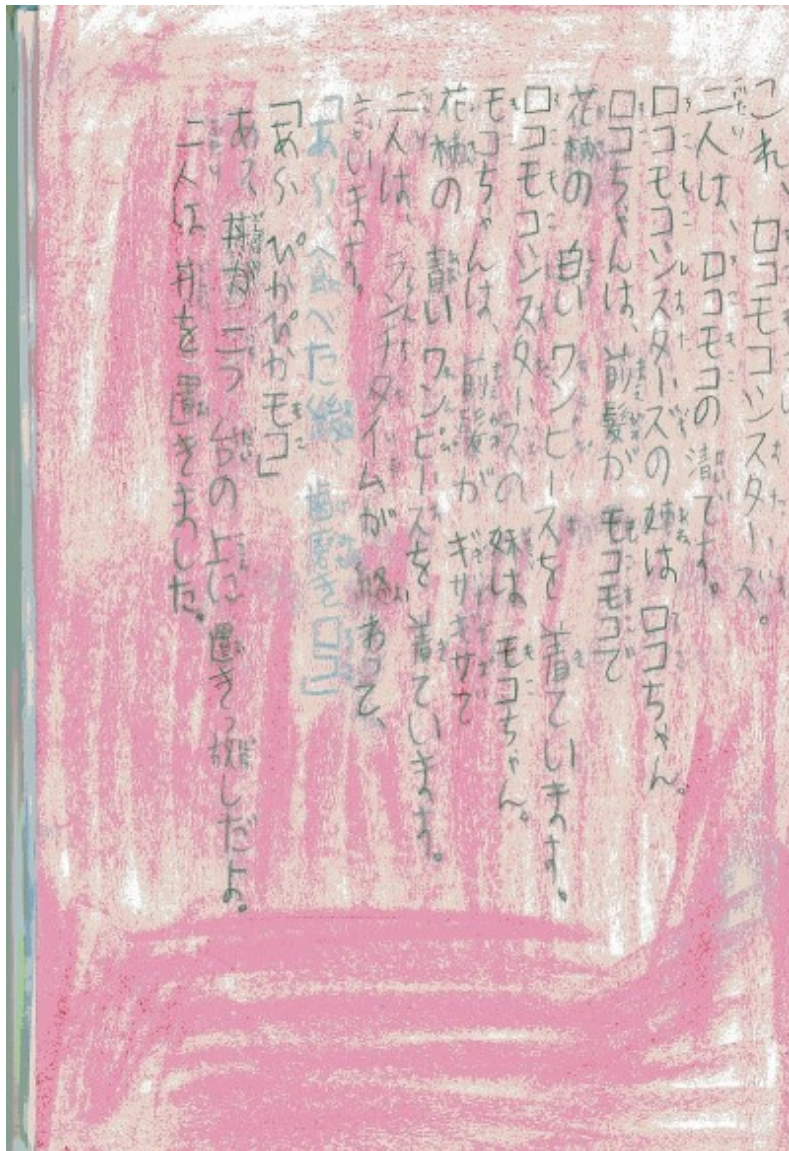 これ、ロコモコシスターズ。
二人は、ロコモコの 精です。
ロコモコシスターズの 姉は ロコちゃん。
ロコちゃんは、前髪が モコモコで
花柄の 白い ワンピースを 着ています。
ロコモコシスターズの 妹は モコちゃん。
モコちゃんは、前髪が ギザギザで
花柄の 青い ワンピースを 着ています。
二人は、ランチタイムが 終わって、
言います。
「あ〜、食べた後、歯磨きロコ」
「あ〜 ぴかぴかモコ」
あえ、丼が 二つ 台の 上に 置きっ放しだよ。
二人は 丼を 置きました。